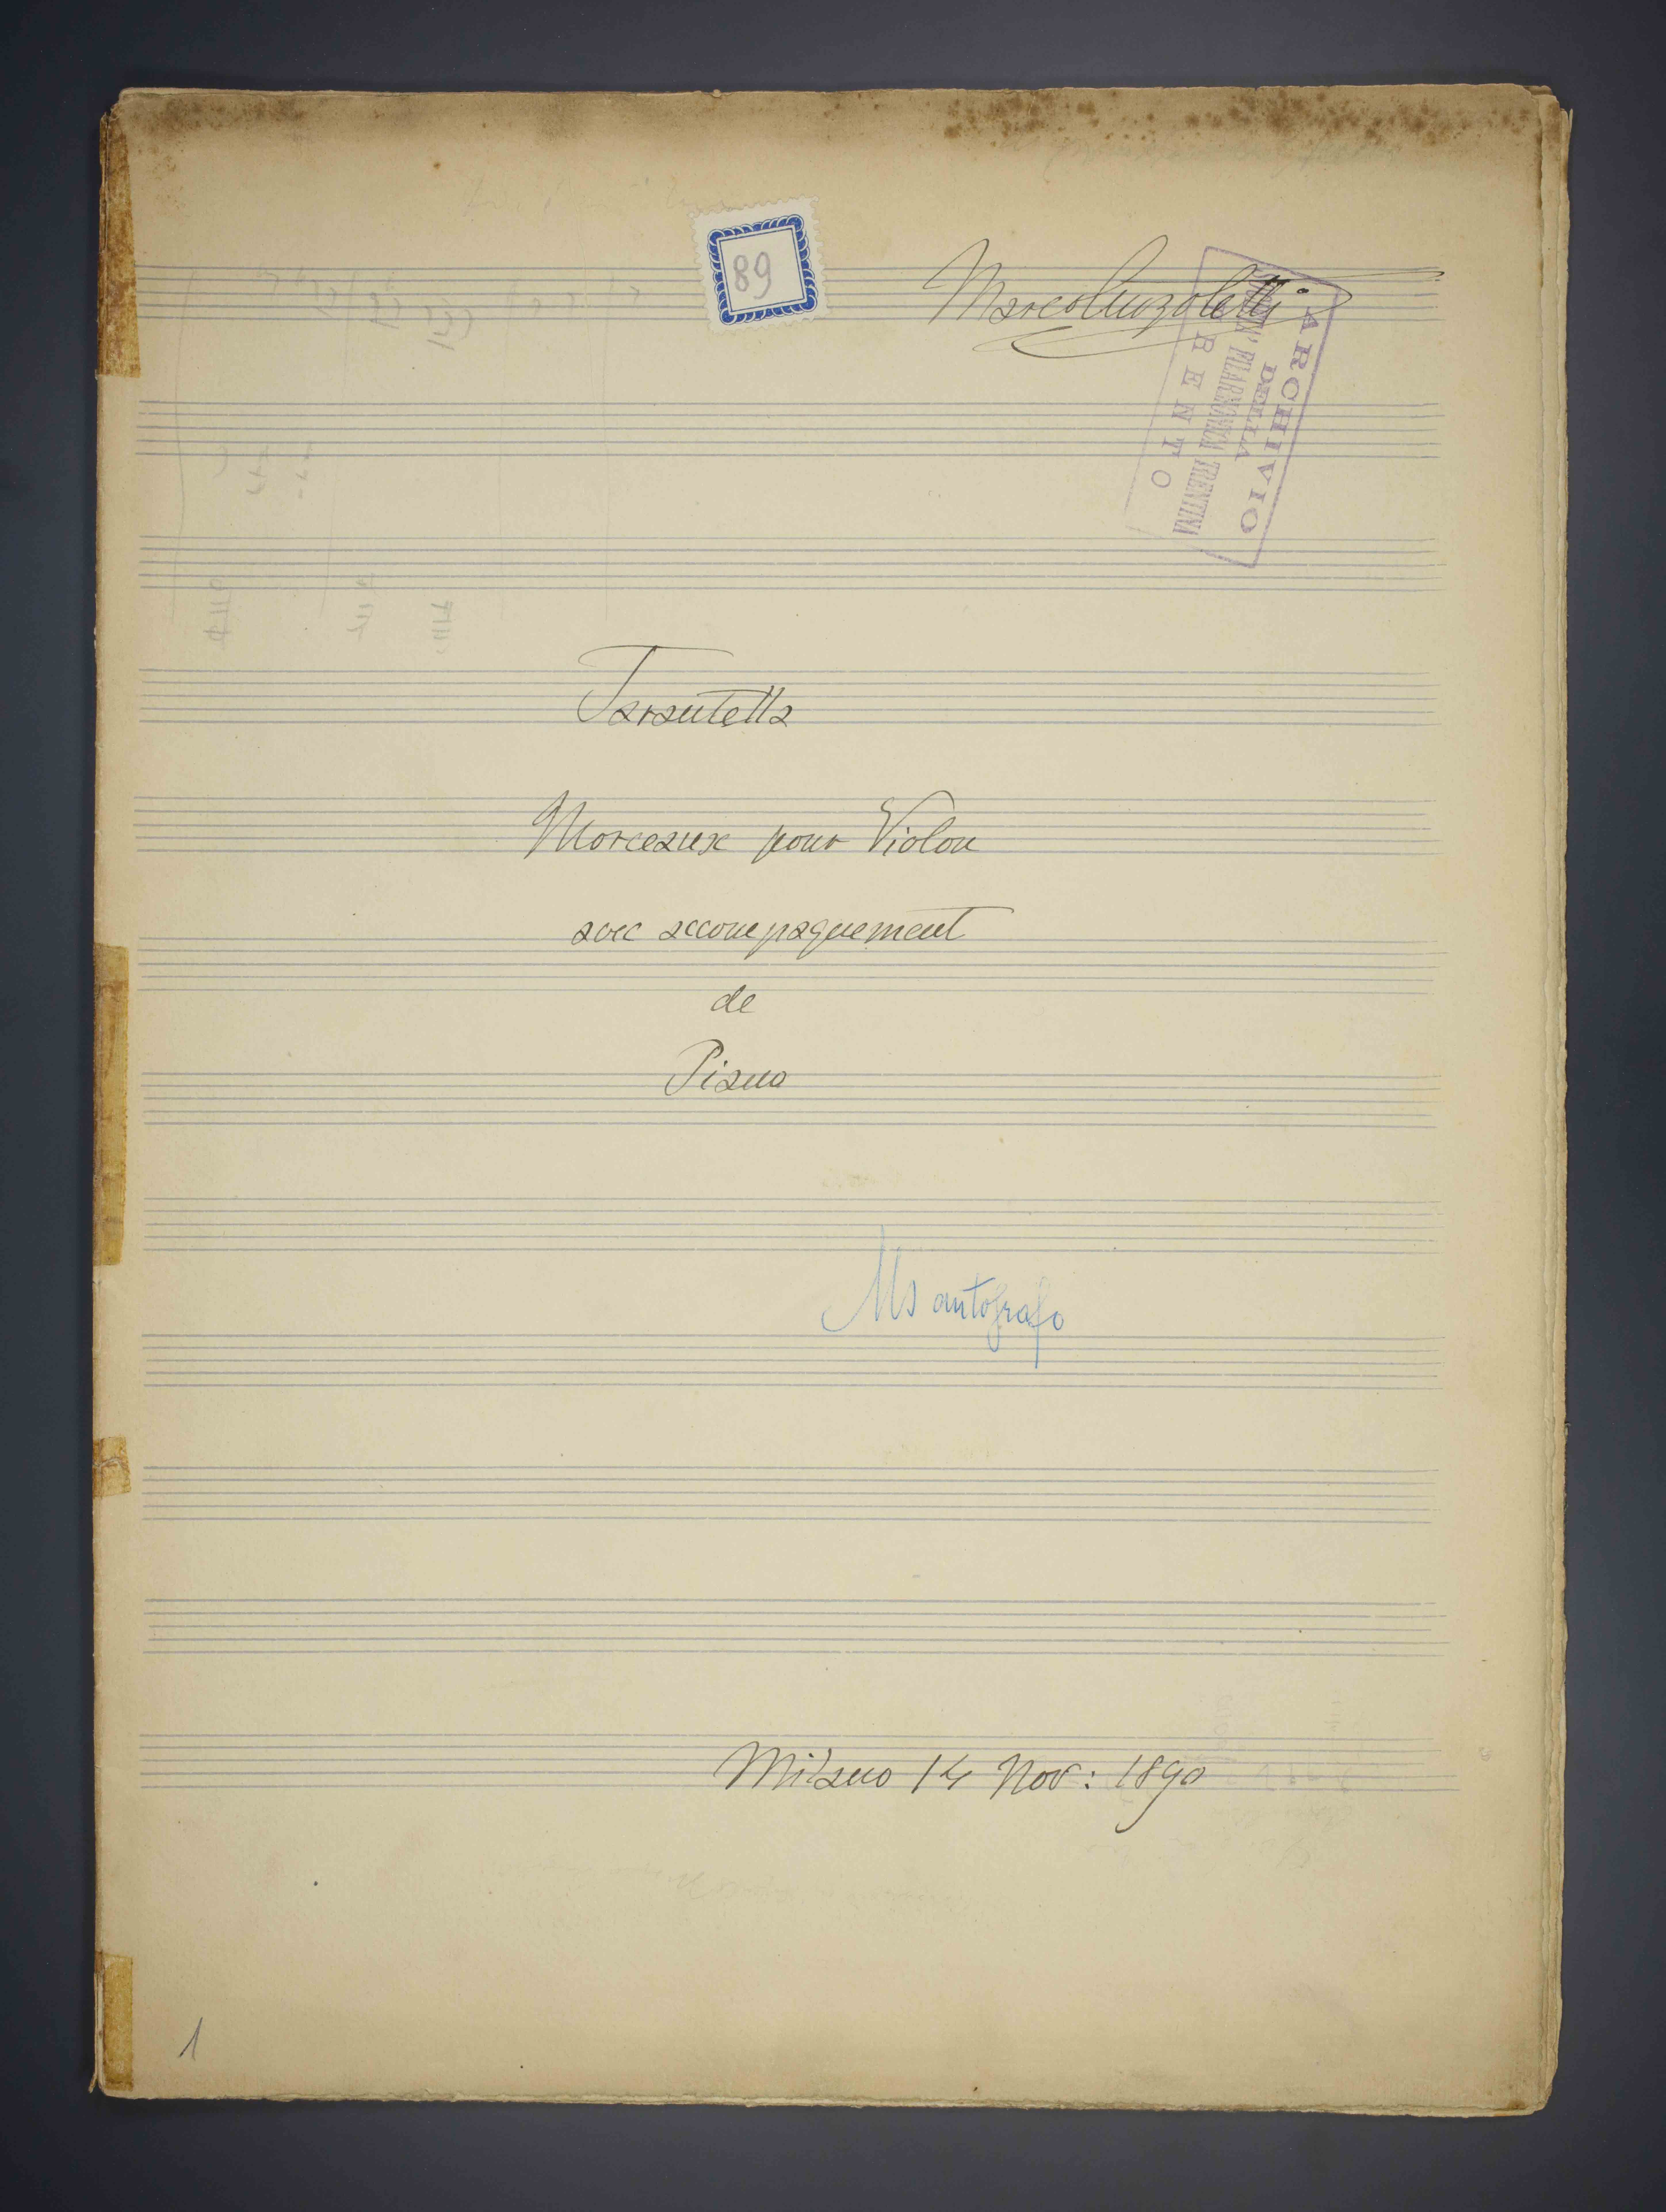 89
Marco Anzoletti
ARCHIVIO
DELLA
SOCIETA' FILARMONICA TRENTINA
TRENTO
Tarantella
Morceaux pour Violon
avec accompagnement
de
Piano
Ms autografo
Milano 14 Nov: 1890
1